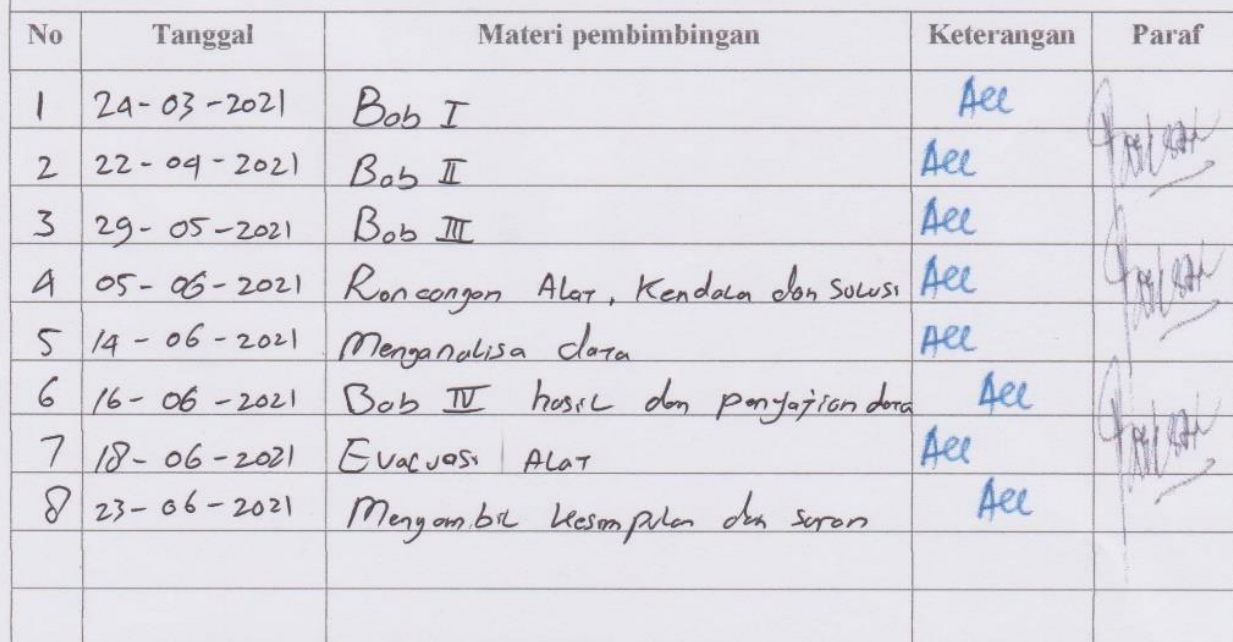 No Tanggal Materi pembimbingan Keterangan Paraf
1 24-03-2021 Bab I Acc
2 22-04-2021 Bab II Acc
3 29-05-2021 Bab III Acc
4 05-06-2021 Rancangan Alat, Kendala dan Solusi Acc
5 14-06-2021 Menganalisa data Acc
6 16-06-2021 Bab IV hasil dan penyajian data Acc
7 18-06-2021 Evaluasi Alat Acc
8 23-06-2021 Mengambil kesimpulan dan saran Acc